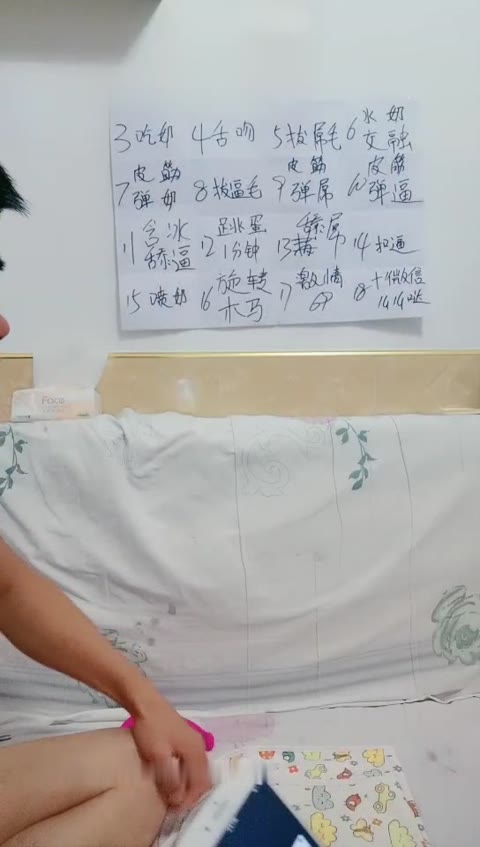 3吃奶 4舌吻 5拔屌毛 6水奶交融
7皮筋弹奶 8拔逼毛 9皮筋弹屌 10皮筋弹逼
11含冰舔逼 12跳蛋1分钟 13 舔屌 14扣逼
15喷奶 16旋转木马 17激情 18十微信
Face